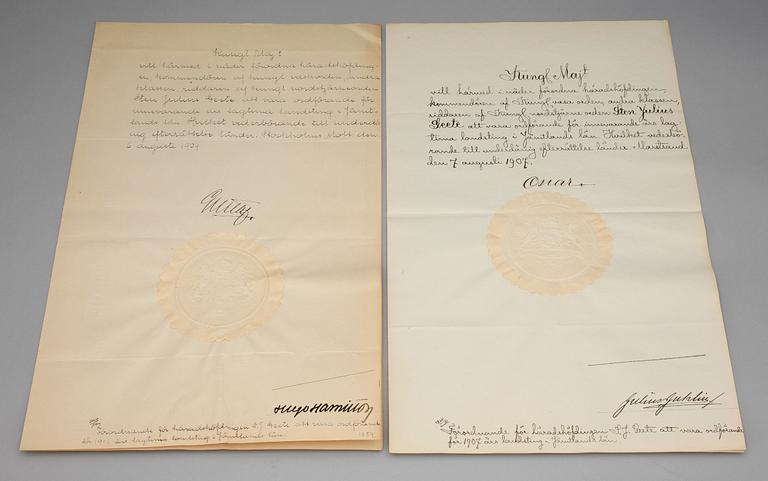 Kungl Maj:t
vill härmed i nåder förordna häradshöfding-
en, kommendören af Kungl vasaorden, andra
klassen, riddaren af Kungl nordstjärneorden
Sten Julius Geete att vara ordförande för
innevarande års lagtima landsting i Jämt-
lands län Hvilket vederbörande till underdå-
nig efterrättelse länder. Stockholms Slott den
6 augusti 1909
Gustaf.
Hugo Hamilton
Förordnande för häradshöfdingen S J Geete att vara ordförande
för års lagtima landsting i Jämtlands län.
Kungl Maj:t
vill härmed i nåder förordna häradshöfdingen,
kommendören af Kungl vasa orden, andra klassen,
riddaren af Kungl nordstjärne orden Sten Julius
Geete att vara ordförande för innevarande års lag-
tima landsting i Jämtlands län Hvilket vederbö-
rande till underdånig efterrättelse länder Marstrand
den 7 augusti 1907.
Oscar.
Julius Juhlin
Förordnande för häradshöfdingen S. J. Geete att vara ordförande
för 1907 års landsting i Jämtlands län.